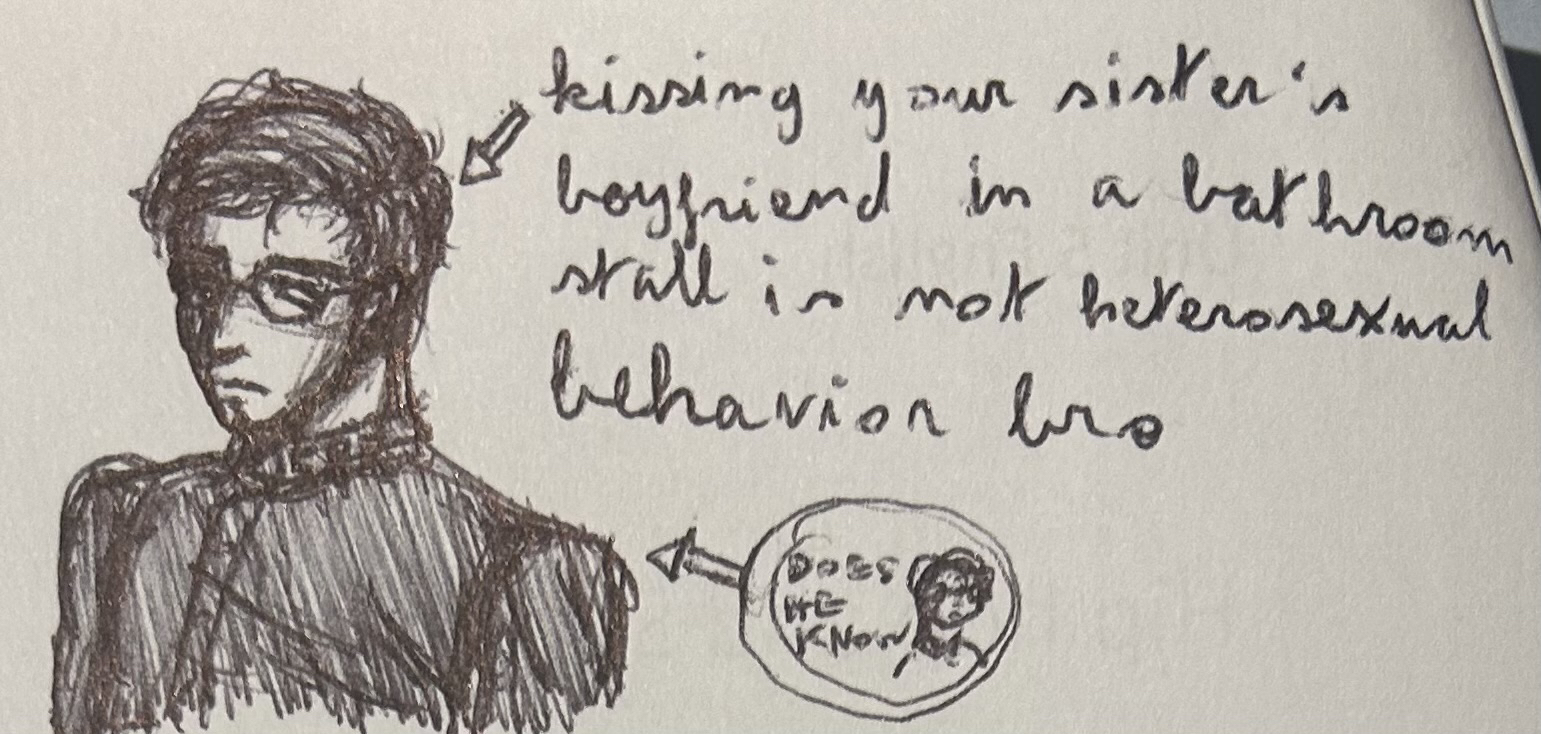 kissing your sister's
boyfriend in a bathroom
stall is not heterosexual
behavior bro
DOES
HE
KNOW